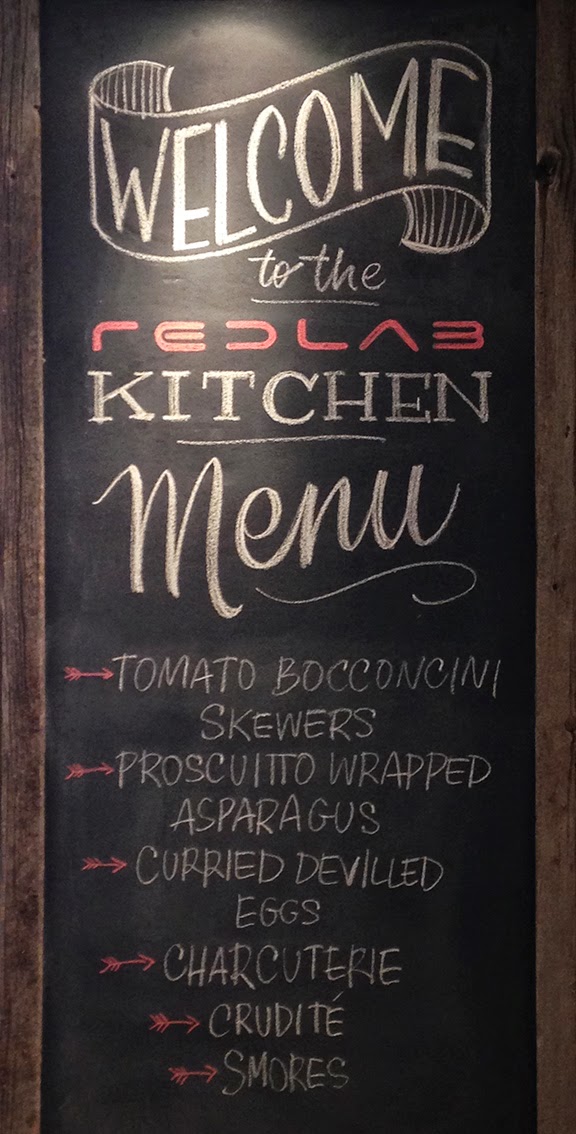 WELCOME
to the
REDLAB
KITCHEN
Menu
TOMATO BOCCONCINI
SKEWERS
PROSCUITTO WRAPPED
ASPARAGUS
CURRIED DEVILLED
EGGS
CHARCUTERIE
CRUDITÉ
SMORES